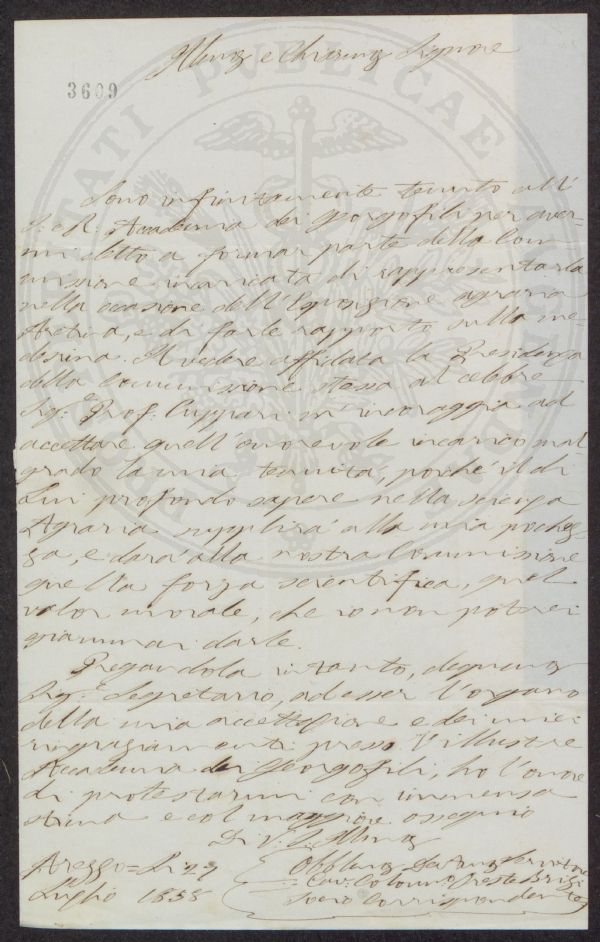 Illmo e Chiarmo Signore
3609
Sono infinitamente tenuto all'
I. e R. Accademia dei Georgofili per aver-
mi eletto a formar parte della Com
missione incaricata di rappresentarla
nella occasione dell'Esposizione agraria
Aretina, e di farle rapporto sulla me-
desima. Il vedere affidata la Presidenza
della Commissione stessa al celebre
Sig: Prof: Cuppari m'incoraggia ad
accettare quell'onorevole incarico mal-
grado la mia tenuità, poiché il di
Lui profondo sapere nella scienza
Agraria supplirà alla mia pochez-
za, e darà alla nostra Commissione
quella forza scientifica, quel
valor morale, che io non potrei
giammai darle.
Pregandola intanto, degnmo
Sig.e Segretario, ad esser l'organo
della mia accettazione e dei miei
ringraziamenti presso l'illustre
Accademia dei Georgofili, ho l'onore
di protestarmi con immensa
stima e col maggiore ossequio
Di V. S. Illma
Arezzo = Li 29
Luglio 1858
Obblmo Servitore
Cav: Colonno Oreste Brizi
Socio Corrispondente
PUBLICAE